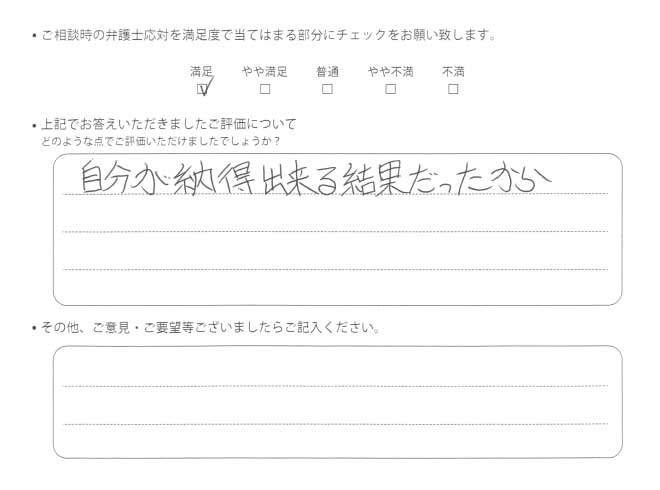 • ご相談時の弁護士応対を満足度で当てはまる部分にチェックをお願い致します。
満足 やや満足 普通 やや不満 不満
☑ □ □ □ □
• 上記でお答えいただきましたご評価について
どのような点でご評価いただけましたでしょうか？
自分が納得出来る結果だったから
• その他、ご意見・ご要望等ございましたらご記入ください。